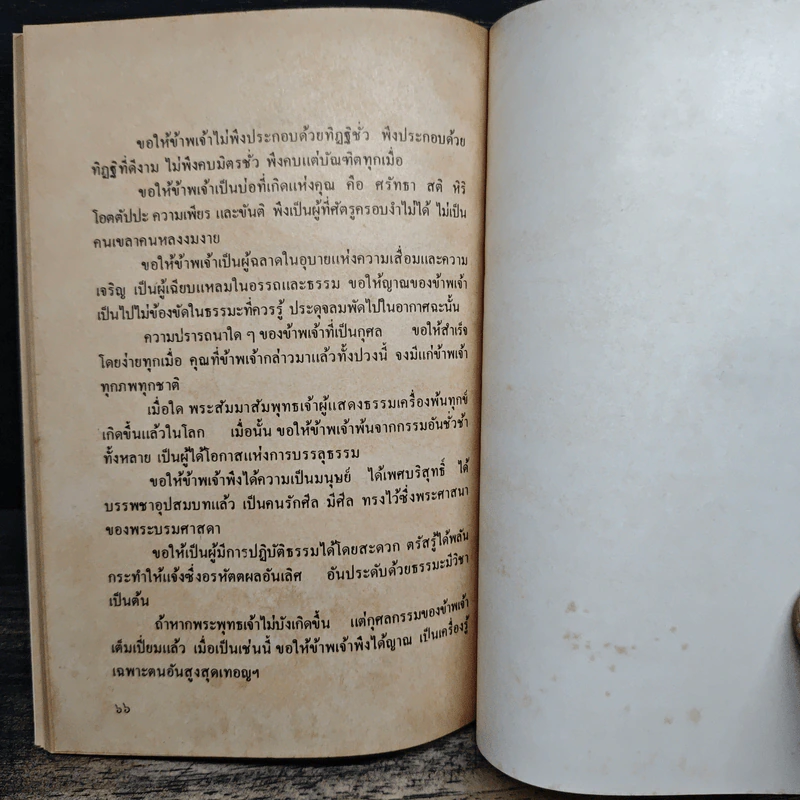 ขอให้ข้าพเจ้าไม่พึงประกอบด้วยทิฏฐิชั่ว พึงประกอบด้วย
ทิฏฐิที่ดีงาม ไม่พึงคบมิตรชั่ว พึงคบแต่บัณฑิตทุกเมื่อ
ขอให้ข้าพเจ้าเป็นบ่อที่เกิดแห่งคุณ คือ ศรัทธา สติ หิริ
โอตตัปปะ ความเพียร และขันติ พึงเป็นผู้ที่ศัตรูครอบงำไม่ได้ ไม่เป็น
คนเขลาคนหลงงมงาย
ขอให้ข้าพเจ้าเป็นผู้ฉลาดในอุบายแห่งความเสื่อมและความ
เจริญ เป็นผู้เฉียบแหลมในอรรถและธรรม ขอให้ญาณของข้าพเจ้า
เป็นไปไม่ข้องขัดในธรรมะที่ควรรู้ ประดุจลมพัดไปในอากาศฉะนั้น
ความปรารถนาใด ๆ ของข้าพเจ้าที่เป็นกุศล ขอให้สำเร็จ
โดยง่ายทุกเมื่อ คุณที่ข้าพเจ้ากล่าวมาแล้วทั้งปวงนี้ จงมีแก่ข้าพเจ้า
ทุกภพทุกชาติ
เมื่อใด พระสัมมาสัมพุทธเจ้าผู้แสดงธรรมเครื่องพ้นทุกข์
เกิดขึ้นแล้วในโลก เมื่อนั้น ขอให้ข้าพเจ้าพ้นจากกรรมอันชั่วช้า
ทั้งหลาย เป็นผู้ได้โอกาสแห่งการบรรลุธรรม
ขอให้ข้าพเจ้าพึงได้ความเป็นมนุษย์ ได้เพศบริสุทธิ์ ได้
บรรพชาอุปสมบทแล้ว เป็นคนรักศีล มีศีล ทรงไว้ซึ่งพระศาสนา
ของพระบรมศาสดา
ขอให้เป็นผู้มีการปฏิบัติธรรมได้โดยสะดวก ตรัสรู้ได้พลัน
กระทำให้แจ้งซึ่งอรหัตตผลอันเลิศ อันประดับด้วยธรรมะมีวิชา
เป็นต้น
ถ้าหากพระพุทธเจ้าไม่บังเกิดขึ้น แต่กุศลกรรมของข้าพเจ้า
เต็มเปี่ยมแล้ว เมื่อเป็นเช่นนี้ ขอให้ข้าพเจ้าพึงได้ญาณ เป็นเครื่องรู้
เฉพาะตนอันสูงสุดเทอญฯ
๖๖